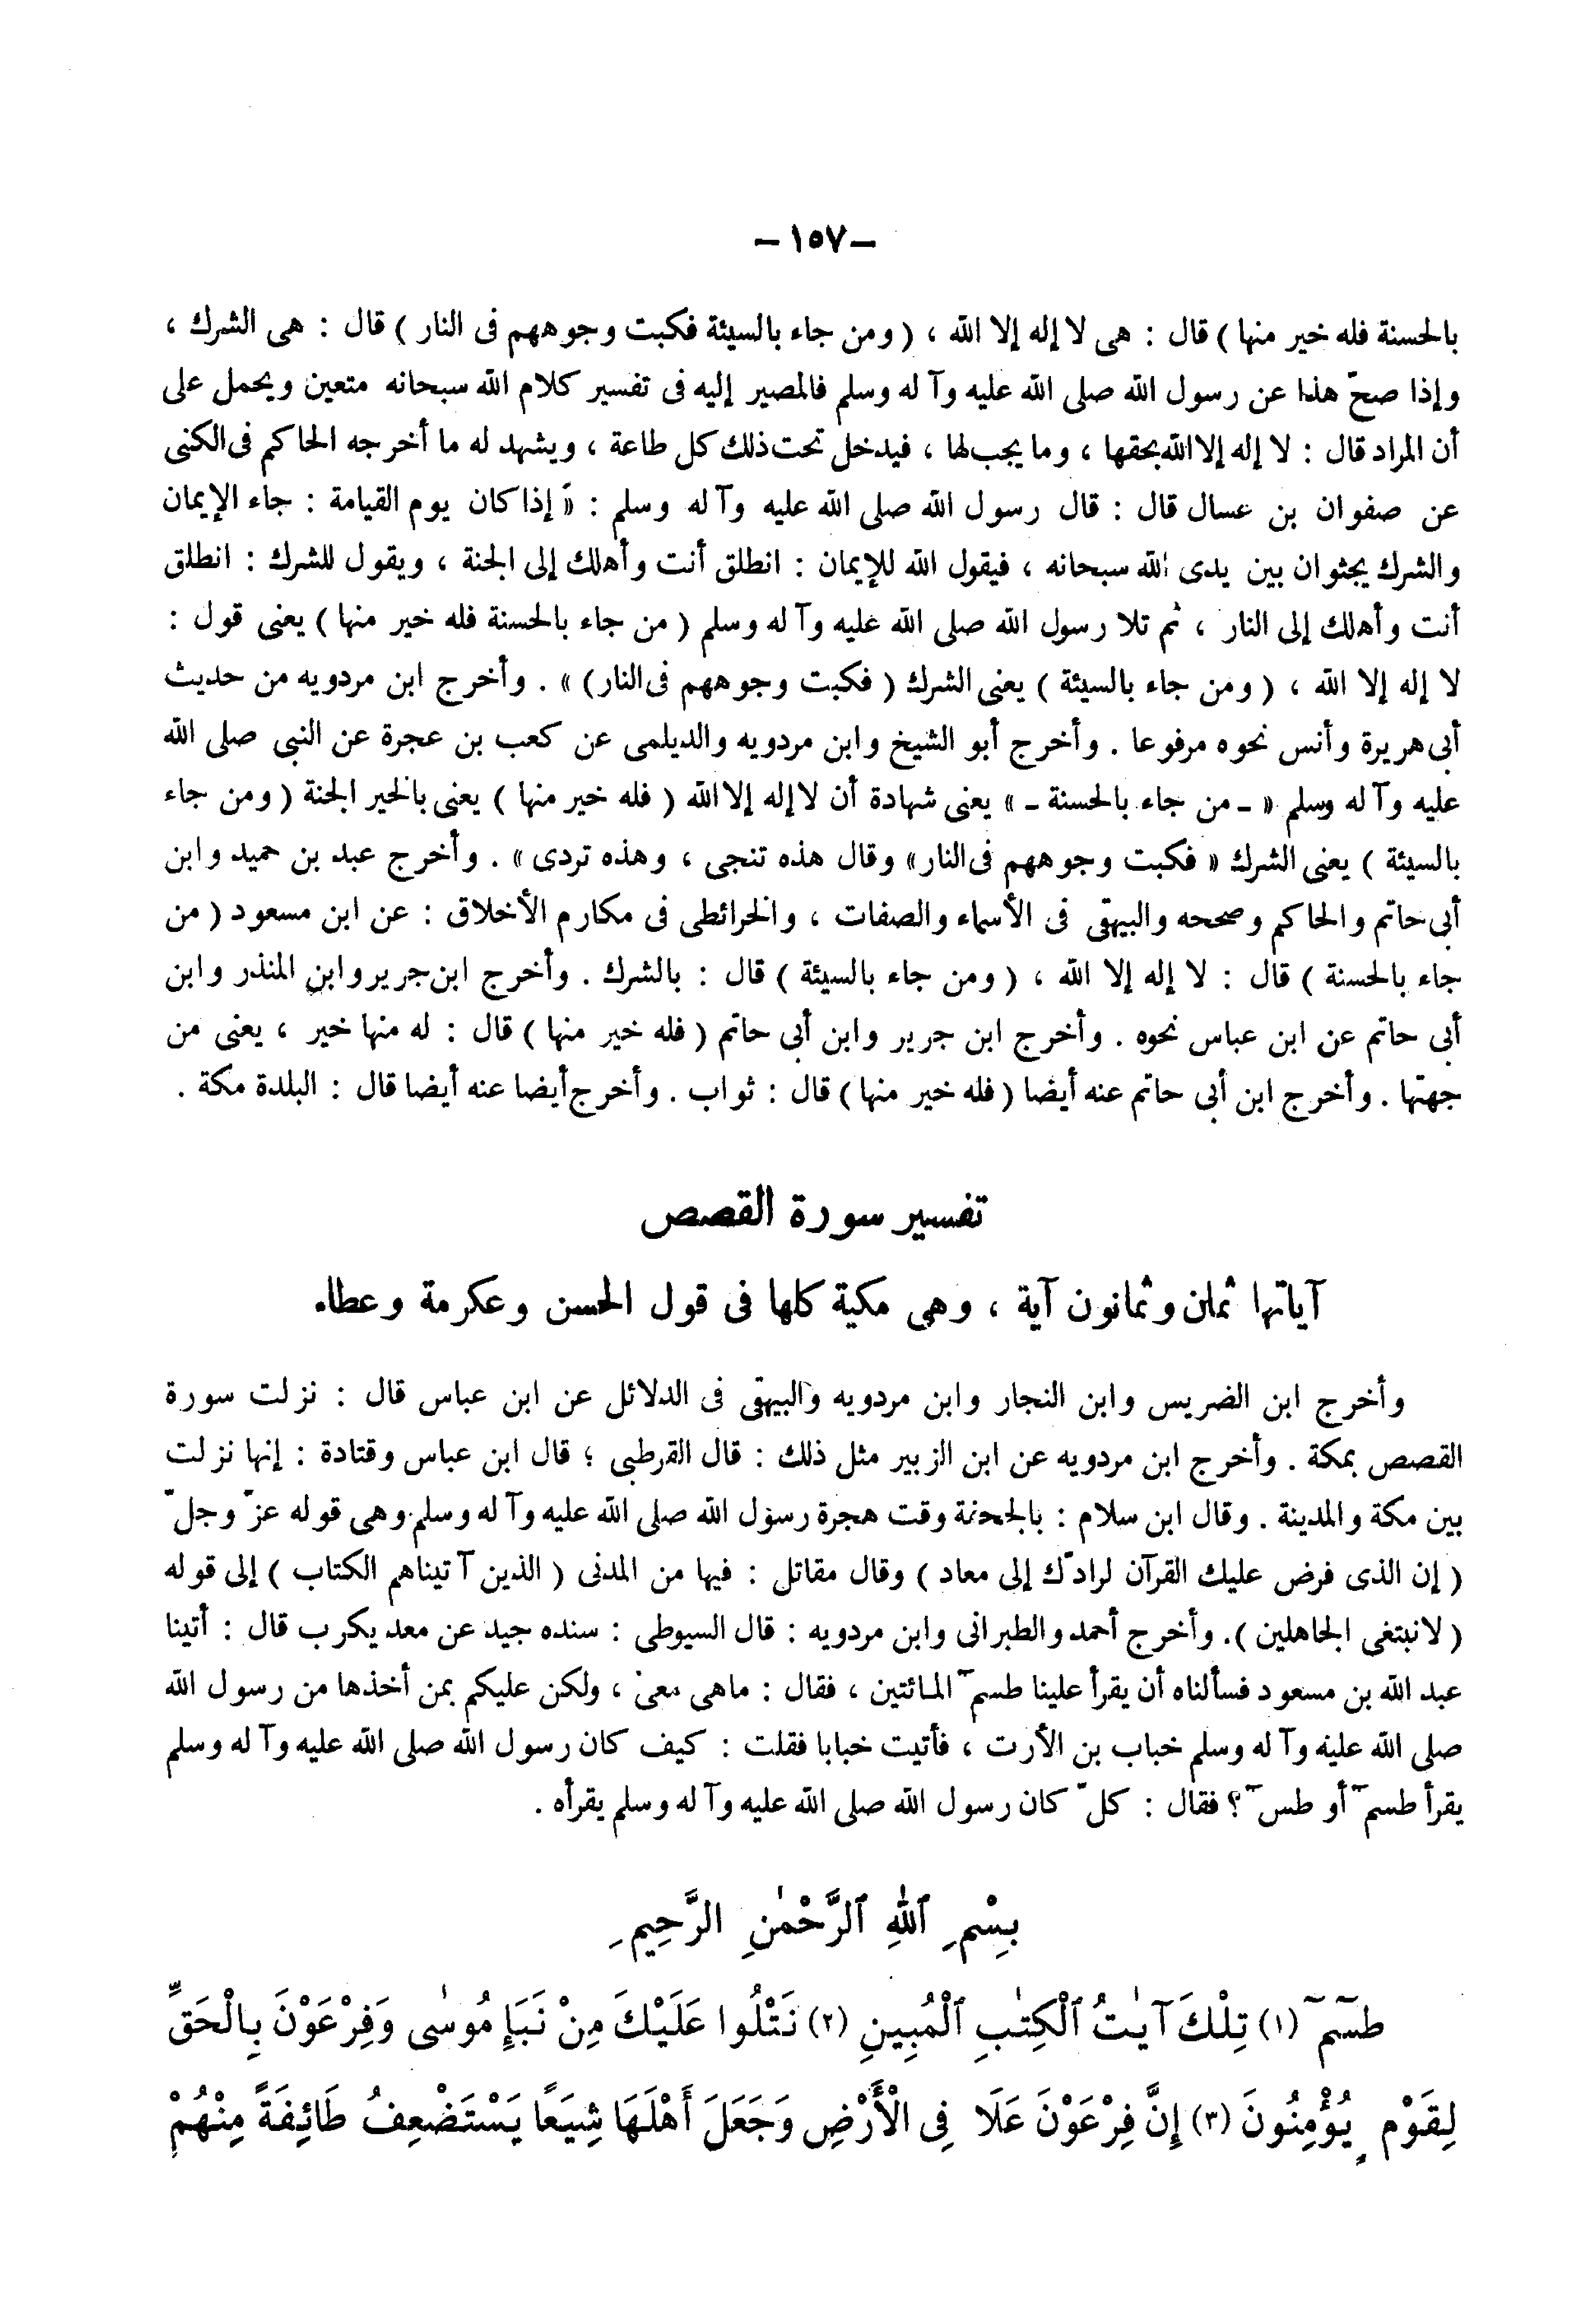 – ١٥٧ –
بالحسنة فله خير منها ) قال : هى لا إله إلا الله ، ( ومن جاء بالسيئة فكبت وجوههم فى النار ) قال : هى الشرك ،
وإذا صحّ هذا عن رسول الله صلى الله عليه وآله وسلم فالمصير إليه فى تفسير كلام الله سبحانه متعين ويحمل على
أن المراد قال : لا إله إلا الله بحقها ، وما يجب لها ، فيدخل تحت ذلك كل طاعة ، ويشهد له ما أخرجه الحاكم فى الكنى
عن صفوان بن عسال قال : قال رسول الله صلى الله عليه وآله وسلم : « إذا كان يوم القيامة : جاء الإيمان
والشرك يجثوان بين يدى الله سبحانه ، فيقول الله للإيمان : انطلق أنت وأهلك إلى الجنة ، ويقول للشرك : انطلق
أنت وأهلك إلى النار ، ثم تلا رسول الله صلى الله عليه وآله وسلم ( من جاء بالحسنة فله خير منها ) يعنى قول :
لا إله إلا الله ، ( ومن جاء بالسيئة ) يعنى الشرك ( فكبت وجوههم فى النار) » . وأخرج ابن مردويه من حديث
أبى هريرة وأنس نحوه مرفوعا . وأخرج أبو الشيخ وابن مردويه والديلمى عن كعب بن عجرة عن النبى صلى الله
عليه وآله وسلم « ـ من جاء بالحسنة ـ » يعنى شهادة أن لا إله إلا الله ( فله خير منها ) يعنى بالخير الجنة ( ومن جاء
بالسيئة ) يعنى الشرك « فكبت وجوههم فى النار» وقال هذه تنجى ، وهذه تردى » . وأخرج عبد بن حميد وابن
أبى حاتم والحاكم وصححه والبيهقى فى الأسماء والصفات ، والخرائطى فى مكارم الأخلاق : عن ابن مسعود ( من
جاء بالحسنة ) قال : لا إله إلا الله ، ( ومن جاء بالسيئة ) قال : بالشرك . وأخرج ابن جرير وابن المنذر وابن
أبى حاتم عن ابن عباس نحوه . وأخرج ابن جرير وابن أبى حاتم ( فله خير منها ) قال : له منها خير ، يعنى من
جهتها . وأخرج ابن أبى حاتم عنه أيضا ( فله خير منها ) قال : ثواب . وأخرج أيضا عنه أيضا قال : البلدة مكة .
تفسير سورة القصص
آياتها ثمان وثمانون آية ، وهى مكية كلها فى قول الحسن وعكرمة وعطاء
وأخرج ابن الضريس وابن النجار وابن مردويه والبيهقى فى الدلائل عن ابن عباس قال : نزلت سورة
القصص بمكة . وأخرج ابن مردويه عن ابن الزبير مثل ذلك : قال القرطبى ؛ قال ابن عباس وقتادة : إنها نزلت
بين مكة والمدينة . وقال ابن سلام : بالجحفة وقت هجرة رسول الله صلى الله عليه وآله وسلم وهى قوله عزّ وجلّ
( إن الذى فرض عليك القرآن لرادّك إلى معاد ) وقال مقاتل : فيها من المدنى ( الذين آتيناهم الكتاب ) إلى قوله
( لا نبتغى الجاهلين ). وأخرج أحمد والطبرانى وابن مردويه : قال السيوطى : سنده جيد عن معد يكرب قال : أتينا
عبد الله بن مسعود فسألناه أن يقرأ علينا طسمۤ المائتين ، فقال : ماهى معى ، ولكن عليكم بمن أخذها من رسول الله
صلى الله عليه وآله وسلم خباب بن الأرت ، فأتيت خبابا فقلت : كيف كان رسول الله صلى الله عليه وآله وسلم
يقرأ طسمۤ أو طسۤ ؟ فقال : كلّ كان رسول الله صلى الله عليه وآله وسلم يقرأه .
بِسْمِ ٱللهِ ٱلرَّحْمٰنِ الرَّحِيمِ
طسۤمۤ (١) تِلْكَ آيٰتُ ٱلْكِتٰبِ ٱلْمُبِينِ (٢) نَتْلُوا عَلَيْكَ مِنْ نَبَإِ مُوسٰى وَفِرْعَوْنَ بِالْحَقِّ
لِقَوْمٍ يُؤْمِنُونَ (٣) إِنَّ فِرْعَوْنَ عَلَا فِى الْأَرْضِ وَجَعَلَ أَهْلَهَا شِيَعًا يَسْتَضْعِفُ طَائِفَةً مِنْهُمْ